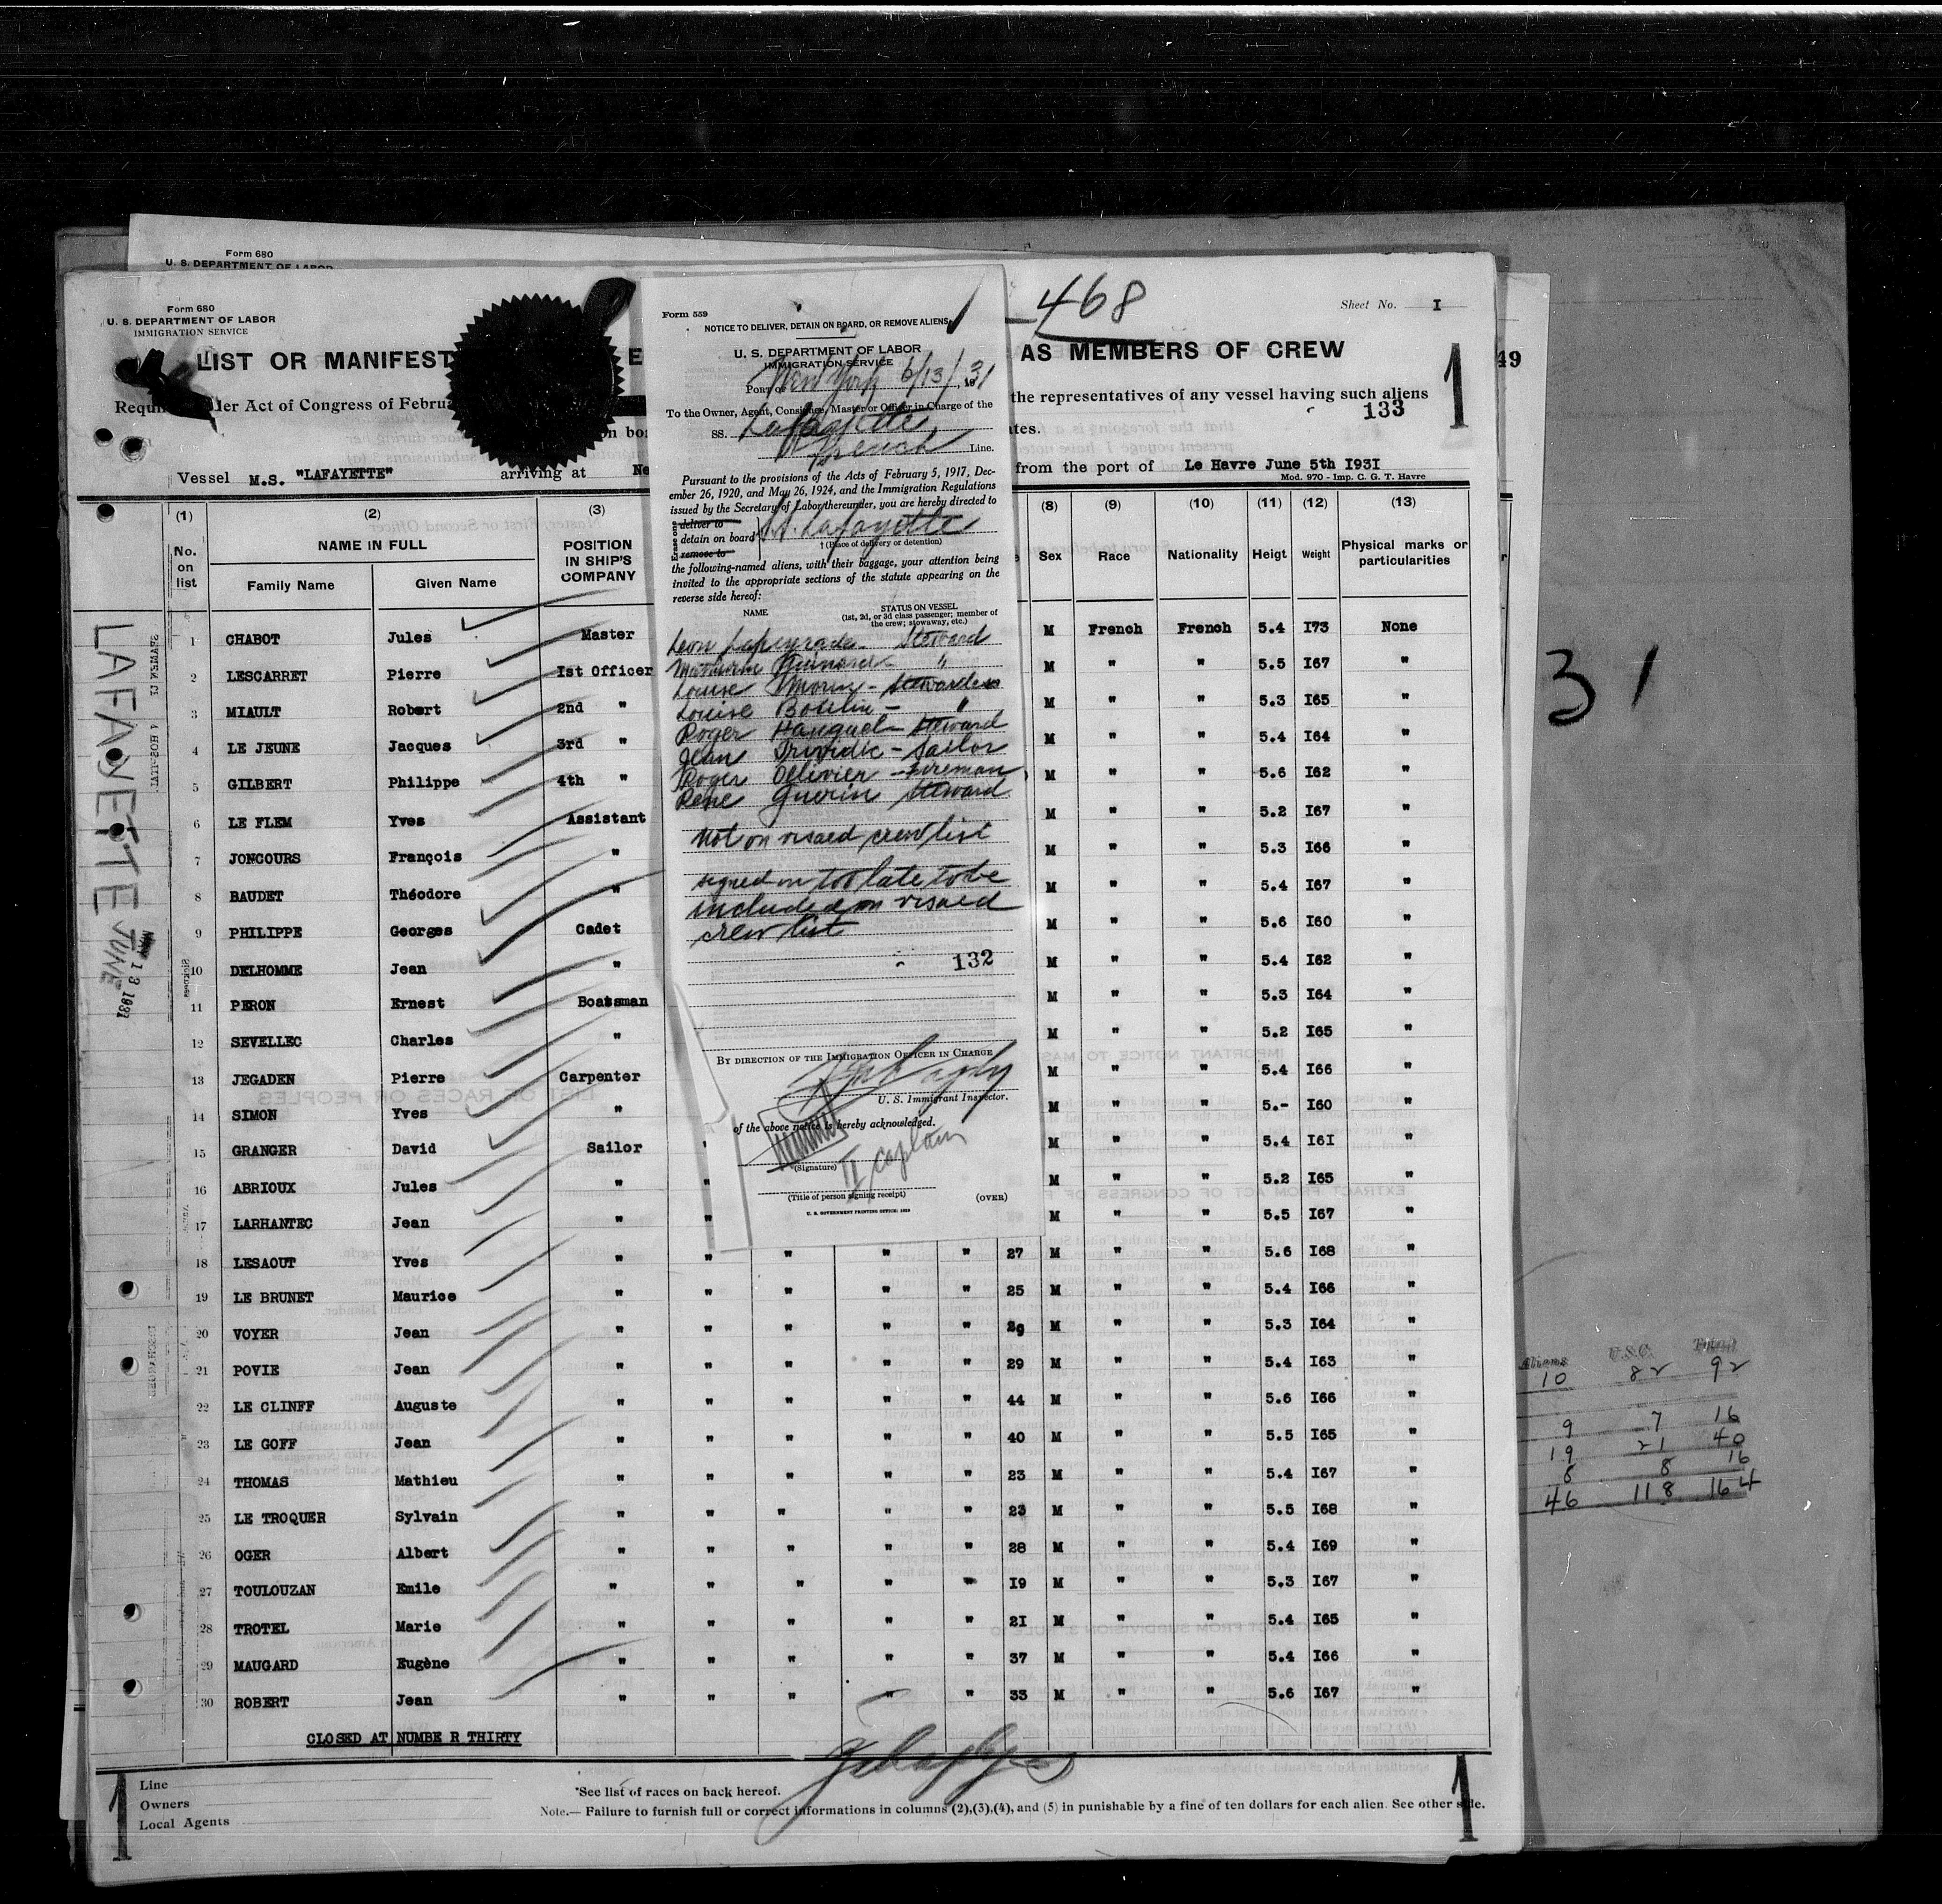 Form 680
U. S. DEPARTMENT OF LABOR
Form 680
U. S. DEPARTMENT OF LABOR
IMMIGRATION SERVICE
LIST OR MANIFEST
AS MEMBERS OF CREW
468
Sheet No. I
1
49
the representatives of any vessel having such aliens
133
Act of Congress of
Vessel M.S. "LAFAYETTE" arriving at Ne
from the port of Le Havre June 5th I93I
Mod. 970 - Imp. C. G. T. Havre
Form 559
NOTICE TO DELIVER, DETAIN ON BOARD, OR REMOVE ALIENS
U. S. DEPARTMENT OF LABOR
IMMIGRATION SERVICE
Port of New York 6/13/, 1931
To the Owner, Agent, Consignee, Master or Officer in Charge of the
SS. Lafayette
French Line.
Pursuant to the provisions of the Acts of February 5, 1917, Dec-
ember 26, 1920, and May 26, 1924, and the Immigration Regulations
issued by the Secretary of Labor thereunder, you are hereby directed to
Erase one
deliver to
detain on board
remove to
S.S. Lafayette
† (Place of delivery or detention)
the following-named aliens, with their baggage, your attention being
invited to the appropriate sections of the statute appearing on the
reverse side hereof:
NAME
STATUS ON VESSEL
(1st, 2d, or 3d class passenger; member of
the crew; stowaway, etc.)
Leon Lapeyrade - Steward
Guinard - "
Louise Morin - Stewardess
Louise - "
Roger Hauguel - Steward
Jean Trividic - Sailor
Roger Ollivier - Fireman
Rene Guerin Steward
Not on visaed crew list
signed on too late to be
included on visaed
crew list
132
BY DIRECTION OF THE IMMIGRATION OFFICER IN CHARGE
U. S. Immigrant Inspector.
of the above notice is hereby acknowledged.
(Signature)
II captain
(Title of person signing receipt)
(OVER)
U. S. GOVERNMENT PRINTING OFFICE: 1929
(1) (2) (3) (8) (9) (10) (11) (12) (13)
No. on list
NAME IN FULL
Family Name Given Name
POSITION IN SHIP'S COMPANY
Sex Race Nationality Heigt Weight Physical marks or particularities
1 CHABOT Jules Master M French French 5.4 I73 None
2 LESCARRET Pierre Ist Officer M " " 5.5 I67 "
3 MIAULT Robert 2nd " M " " 5.3 I65 "
4 LE JEUNE Jacques 3rd " M " " 5.4 I64 "
5 GILBERT Philippe 4th " M " " 5.6 I62 "
6 LE FLEM Yves Assistant M " " 5.2 I67 "
7 JONCOURS François " M " " 5.3 I66 "
8 BAUDET Théodore " M " " 5.4 I67 "
9 PHILIPPE Georges Cadet M " " 5.6 I60 "
10 DELHOMME Jean " M " " 5.4 I62 "
11 PERON Ernest Boatsman M " " 5.3 I64 "
12 SEVELLEC Charles " M " " 5.2 I65 "
13 JEGADEN Pierre Carpenter M " " 5.4 I66 "
14 SIMON Yves " M " " 5.- I60 "
15 GRANGER David Sailor " M " " 5.4 I6I "
16 ABRIOUX Jules " " M " " 5.2 I65 "
17 LARHANTEC Jean " " M " " 5.5 I67 "
18 LESAOUT Yves " " " " " 27 M " " 5.6 I68 "
19 LE BRUNET Maurice " " " " " 25 M " " 5.4 I66 "
20 VOYER Jean " " " " " 29 M " " 5.3 I64 "
21 POVIE Jean " " " " " 29 M " " 5.4 I63 "
22 LE CLINFF Auguste " " " " " 44 M " " 5.6 I66 "
23 LE GOFF Jean " " " " " 40 M " " 5.5 I65 "
24 THOMAS Mathieu " " " " " 23 M " " 5.4 I67 "
25 LE TROQUER Sylvain " " " " " 23 M " " 5.5 I68 "
26 OGER Albert " " " " " 28 M " " 5.4 I69 "
27 TOULOUZAN Emile " " " " " I9 M " " 5.3 I67 "
28 TROTEL Marie " " " " " 2I M " " 5.4 I65 "
29 MAUGARD Eugène " " " " " 37 M " " 5.4 I66 "
30 ROBERT Jean " " " " " 33 M " " 5.6 I67 "
CLOSED AT NUMBE R THIRTY
LAFAYETTE
JUNE 13 1931
Line
Owners
Local Agents
*See list of races on back hereof.
Note.— Failure to furnish full or correct informations in columns (2),(3),(4), and (5) in punishable by a fine of ten dollars for each alien. See other side.
1
1
31
Aliens U.S.C. Total
10 82 92
9 7 16
19 21 40
8 8 16
46 118 164